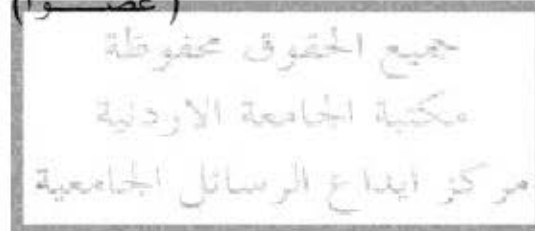 (عضـــــوا)
جميع الحقوق محفوظة
مكتبة الجامعة الاردنية
مركز ايداع الرسائل الجامعية